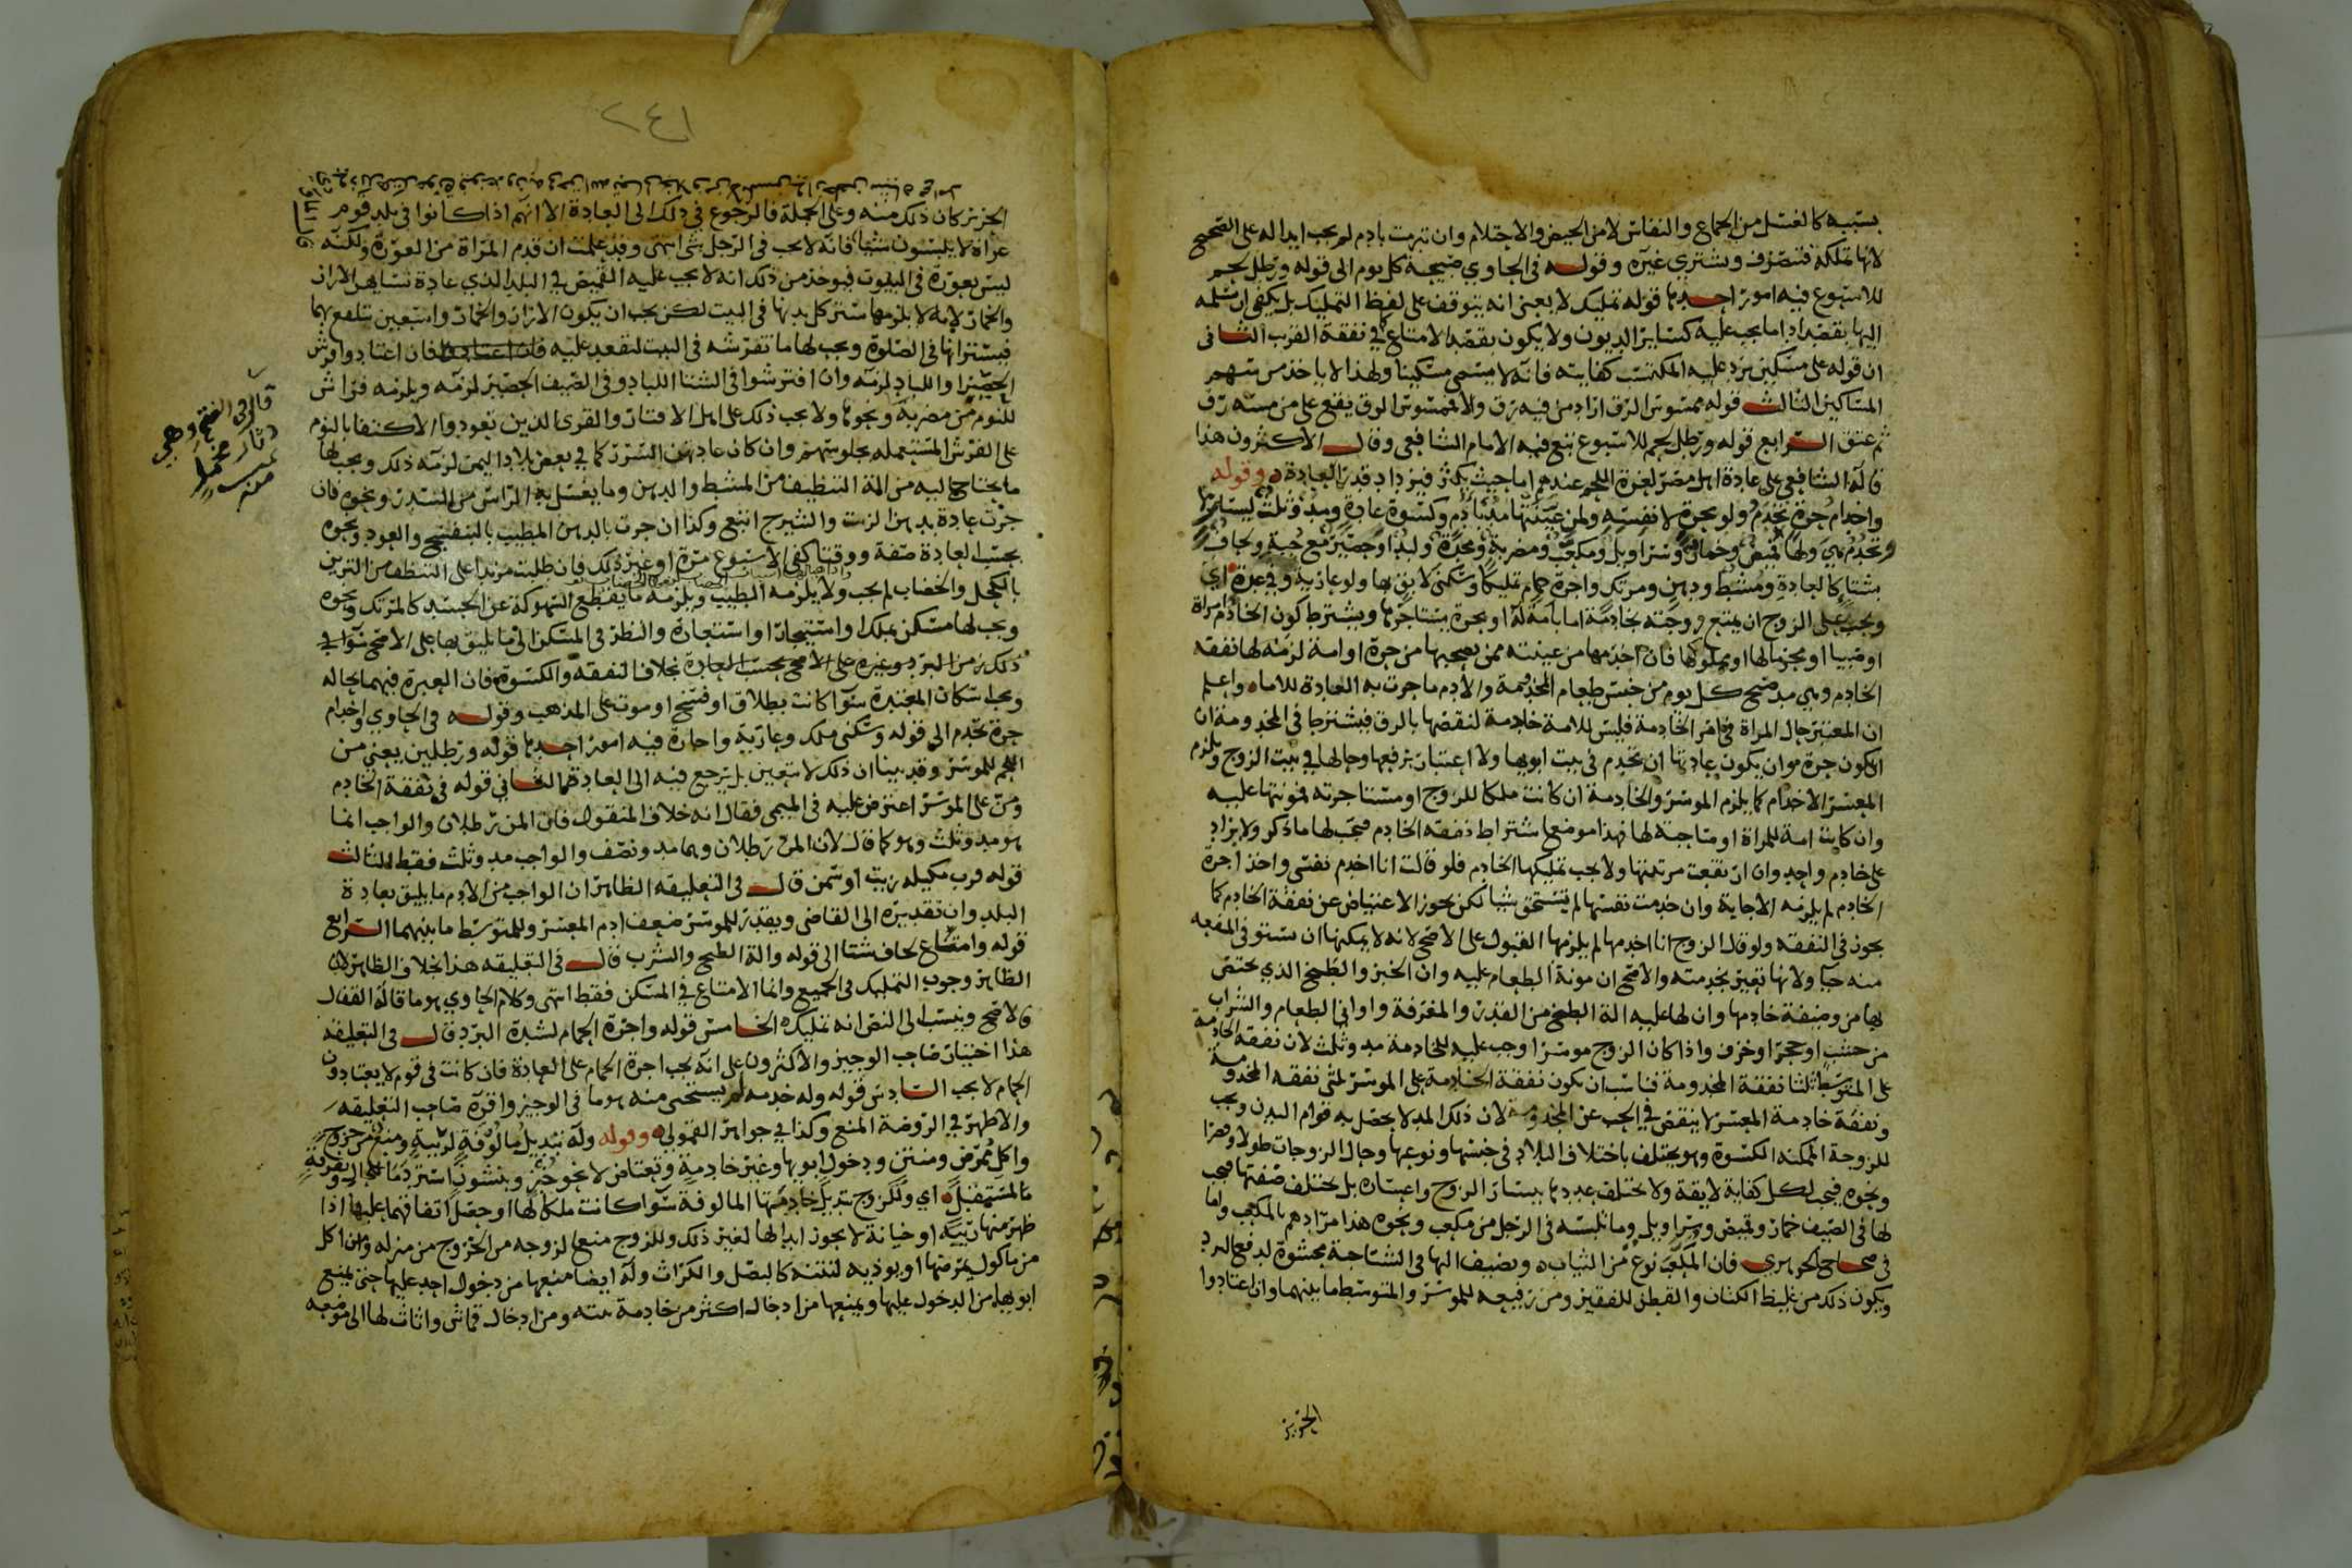 بسببه كالغسل من الجماع والنفاس لا من الحيض والاحتلام وان تبرمت بادم لم يجب ابداله على الصحيح
لانها تملكه فتتصرف وتشتري غيره وقوله في الحاوي صبيحة كل يوم الى قوله ورطل لحم
للاسبوع فيه امور احدها قوله تمليك لا يعني انه يتوقف على لفظ التمليك بل يكفي ان يسلمه
اليها بقصد اداء ما يجب عليه كسائر الديون ولا يكون بقصد الامتاع كما في نفقة القريب الثاني
ان قوله على مسكين يرد عليه المكتسب كفايته فانه لا يسمى مسكينا ولهذا لا ياخذ من سهم
المساكين الثالث قوله ممسوس الرق اراد من فيه رق والا فممسوس الرق يقع على من مسه رق
ثم عتق الرابع قوله ورطل لحم للاسبوع تبع فيه الامام الشافعي وقال الاكثرون هذا
قاله الشافعي على عادة اهل مصر لعزة اللحم عندهم اما حيث يكثر فيزداد بقدر العادة وقوله
واخدام حرة تخدم ولو بحرة لا نفسه ولمن عينتها مد بادم وكسوة عادة ومد وثلث ليسارها
وتخدم هي ولها قميص وخمار وسراويل ومكعب ومضربة ومخدة ولبد او حصير مع جبة ولحاف
بشتاء كالعادة ومشط ودهن ومرتك واجرة حمام تمليكا وسكنى لايق بها ولو عارية وفي عدة اي
ويجب على الزوج ان يمتع زوجته بخادمة اما بامة له او بحرة يستاجرها ويشترط كون الخادم امراة
او صبيا او محرما لها او مملوكها فان اخدمها من عينته ممن يصحبها من حرة او امة لزمه لها نفقة
الخادم وهي مد صبح كل يوم من جنس طعام المخدومة والادم ما جرت به العادة للاماء واعلم
ان المعتبر حال المراة في امر الخادمة فليس للامة خادمة لنقصها بالرق فيشترط في المخدومة ان
تكون حرة وان يكون عادتها ان تخدم في بيت ابويها ولا اعتبار بترفعها وحالها في بيت الزوج ويلزم
المعسر الاخدام كما يلزم الموسر والخادمة ان كانت ملكا للزوج او مستاجرته فمونتها عليه
وان كانت امة للمراة او صاحبة لها فهذا موضع اشتراط نفقة الخادم فيجب لها ما ذكر ولا يزاد
على خادم واحد وان ارتفعت مرتبتها ولا يجب تمليكها الخادم فلو قالت انا اخدم نفسي واخذ اجرة
الخادم لم يلزمه الاجابة وان خدمت نفسها لم تستحق شيا لكن يجوز الاعتياض عن نفقة الخادم كما
يجوز في النفقة ولو قال الزوج انا اخدمها لم يلزمها القبول على الاصح لانه لا يمكنها ان تستوفي المنفعة
منه حيا ولانها تعير بخدمته والاصح ان مونة الطعام عليه وان الخبز والطبخ الذي يختص
بها من وظيفة خادمها وان لها عليه الة الطبخ من القدر والمغرفة واواني الطعام والشراب
من خشب او حجر او خزف واذا كان الزوج موسرا وجب عليه للخادمة مد وثلث لان نفقة الخادمة
على المتوسط ثلثا نفقة المخدومة فناسب ان يكون نفقة الخادمة على الموسر ثلثي نفقة المخدومة
ونفقة خادمة المعسر لا ينقص في الحب عن المخدومة لان ذلك المد لا يحصل به قوام البدن ويجب
للزوجة الممكنة الكسوة وهو يختلف باختلاف البلاد في جنسها ونوعها وحال الزوجات طولا وقصرا
ونحوه فيجب لكل كفاية لايقة ولا يختلف عددها بيسار الزوج واعساره بل يختلف صفتها فيجب
لها في الصيف خمار وقميص وسراويل وما تلبسه في الرجل من مكعب ونحوه هذا مرادهم بالمكعب واما
في صحاح الجوهري فان المكعب نوع من الثياب ويضيف اليها في الشتا جبة محشوة لدفع البرد
ويكون ذلك من غليظ الكتان والقطن للفقير ومن رفيعه للموسر والمتوسط ما بينهما وان اعتادوا
الحرير
٢٤١
الحرير كان ذلك منه وعلى الجملة فالرجوع في ذلك الى العادة الا انهم اذا كانوا في بلد قوم
عراة لا يلبسون شيا فانه لا يجب في الرجل شي انتهى وقد علمت ان قدم المراة من العورة ولكنه
ليس بعورة في البيوت فيوخذ من ذلك انه لا يجب عليه القميص في البلد الذي عادة نسايهن الازار
والخمار لانه لا يلزمها ستر كل بدنها في البيت لكن يجب ان يكون الازار والخمار واسعين تتلفع بهما
فيسترانها في الصلوة ويجب لها ما تفرشه في البيت لتقعد عليه فان اعتادوا فرش
الحصير او اللباد لزمه وان افترشوا في الشتا اللباد وفي الصيف الحصير لزمه ويلزمه فراش
للنوم من مضربة ونحوها ولا يجب ذلك على اهل الاقتار والقرى الذين تعودوا الاكتفا بالنوم
على الفرش المستعملة بجلوسهم وان كان عادتهن السرر كما في بعض بلاد اليمن لزمه ذلك ويجب لها
ما يحتاج اليه من الة التنظيف من المشط والدهن وما يغسل به الراس من السدر ونحوه فان
جرت عادة بدهن الزيت والشيرج اتبع وكذا ان جرت بالدهن المطيب بالبنفسج والعود ونحوه
بحسب العادة صفة ووقتا كفي الاسبوع مرة او غير ذلك فان طلبت مزيدا على التنظف من التزين
بالكحل والخضاب لم يجب ولا يلزمه الطيب ويلزمه ما يقطع السهوكة عن الجسد كالمرتك ونحوه
ويجب لها مسكن بملك او استيجار او استعارة والنظر في المسكن الى ما يليق بها على الاصح سوا في
ذلك من البرد وغيره على الاصح بحسب العادة بخلاف النفقة والكسوة فان العبرة فيهما بحاله
ويجب اسكان المعتدة سوا كانت بطلاق او فسخ او موت على المذهب وقوله في الحاوي واخدام
حرة تخدم الى قوله وسكنى ملك وعارية واجارة فيه امور احدها قوله ورطلين يعني من
اللحم للموسر وقد بينا ان ذلك لا يتعين بل يرجع فيه الى العادة الثاني قوله في نفقة الخادم
ومن على الموسر اعترض عليه في الميمي فقال انه خلاف المنقول فان المن رطلان والواجب انما
هو مد وثلث وهو كما قال لان المن رطلان وهما مد ونصف والواجب مد وثلث فقط الثالث
قوله قرب مكيله زيت او سمن قال في التعليقة الظاهر ان الواجب من الادم ما يليق بعادة
البلد وان تقديره الى القاضي ويقدر للموسر ضعف ادم المعسر وللمتوسط ما بينهما الرابع
قوله وامتاع لحاف شتا الى قوله والة الطبخ والشرب قال في التعليقة هذا بخلاف الظاهر لان
الظاهر وجوب التمليك في الجميع وانما الامتاع في المسكن فقط انتهى وكلام الحاوي هو ما قاله القفال
والاصح وينسب الى النص انه تمليك الخامس قوله واجرة الحمام لشدة البرد قال في التعليقة
هذا اختيار صاحب الوجيز والاكثرون على انه يجب اجرة الحمام على العادة فان كانت في قوم لا يعتادون
الحمام لا يجب السادس قوله وله خدمة لم يستحى منه هو ما في الوجيز واقره صاحب التعليقة
والاظهر في الروضة المنع وكذا في جواهر القمولي وقوله وله تبديل مالوفة لريبة ومنع من خروج
واكل ممرض ومنتن ودخول ابويها وغير خادمة وتعتاض لا نحو خبز وبنشوز استرد
ما لمستقبل اي وللزوج تبديل خادمتها المالوفة سوا كانت ملكا لها او حصل اتفاقهما عليها اذا
ظهر منها ريبة او خيانة لا يجوز ابدالها لغير ذلك وللزوج منع الزوجة من الخروج من منزله ومن اكل
من ماكول يمرضها او يوذيه لنتنه كالبصل والكراث وله ايضا منعها من دخول احد عليها حتى يمنع
ابويها من الدخول عليها ويمنعها من ادخال اكثر من خادمة بيته ومن ادخال قماش واثاث لها الى موضعه
قال في الفتح وهي
دثار مخمل
منه